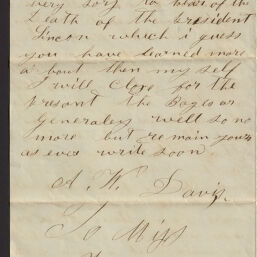 very sory to hear of the
Death of the President
Lincon which i guess
you have learned more
a bout then my self
I will Close for the
Present the Boys or
Generaley well so no
more but re main yours
as ever write soon.
A. W. Davis.
To Miss